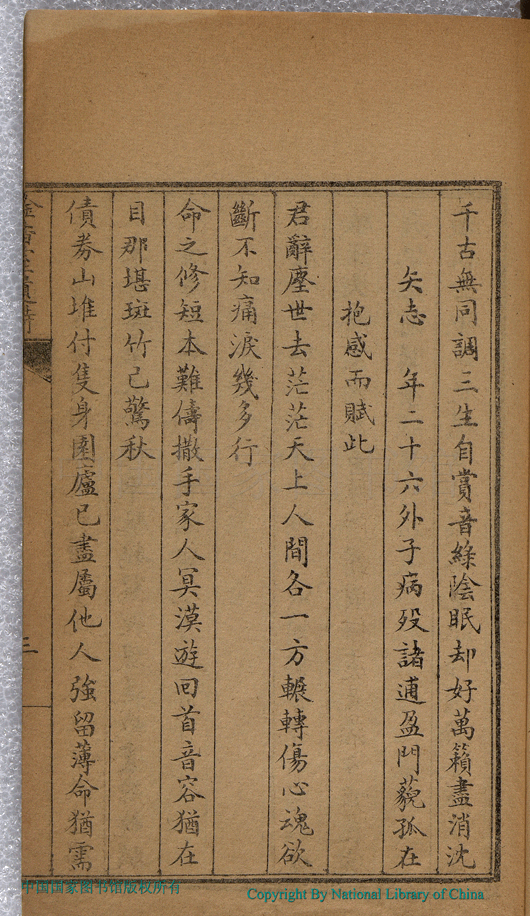 千古無同調三生自賞音綠陰眠却好萬籟盡消沈
矢志　年二十六外子病歿諸逋盈門藐孤在
抱感而賦此
君辭塵世去茫茫天上人間各一方輾轉傷心魂欲
斷不知痛淚幾多行
命之修短本難儔撒手家人冥漠遊回首音容猶在
目那堪斑竹已驚秋
債券山堆付隻身園廬已盡屬他人強留薄命猶需
三
中国国家图书馆版权所有
Copyright By National Library of China